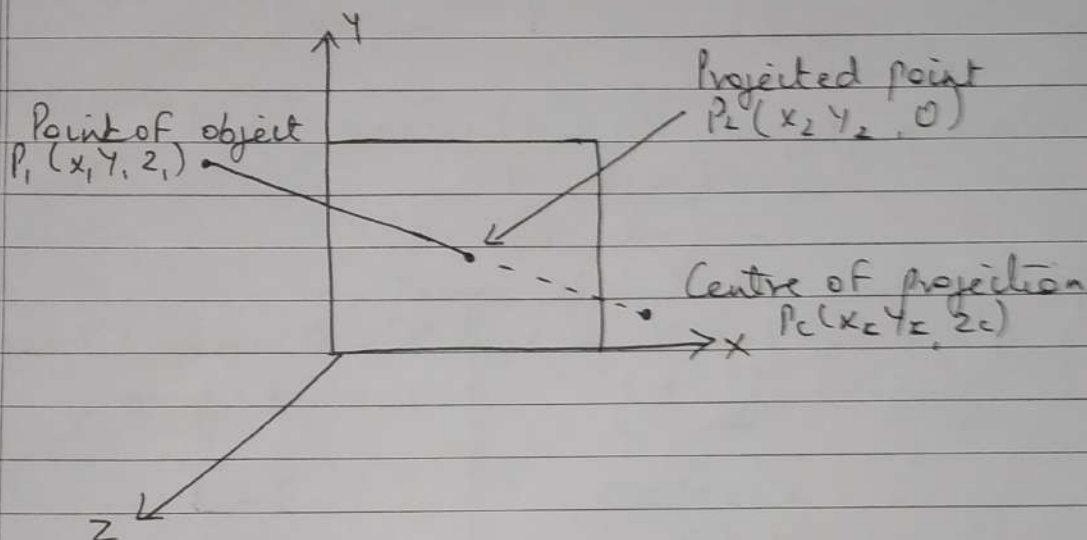 Y
Projected point
P₂ (x₂ y₂, 0)
Point of object
P₁ (x₁ y₁ z₁)
Centre of projection
Pc (xc yc, zc)
X
Z